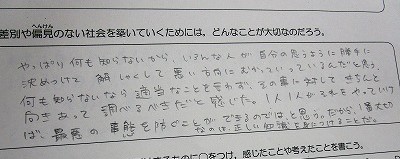 差別や偏見のない社会を築いていくためには、どんなことが大切なのだろう。
へんけん
やっぱり何も知らないから、いろんな人が自分の思うように勝手に
決めつけて 新しくして悪い方向にむかっていっているんだと思う。
何も知らないなら適当なことを言わず、その事に対してきちんと
向きあって調べるべきだと感じた。1人1人がそれをやっていけ
ば、最悪の事態を防ぐことができるのでは、と思う。だから、1番大切
なのは、正しい知識を身につけることだ。
に○をつけ、感じたことや考えたことを書こう。